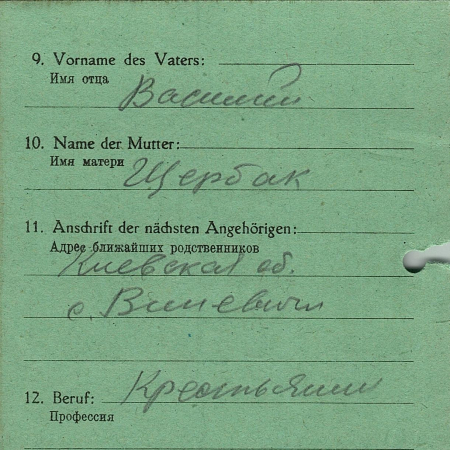 9. Vorname des Vaters:
Имя отца
Василий
10. Name der Mutter:
Имя матери
Щербак
11. Anschrift der nächsten Angehörigen:
Адрес ближайших родственников
Киевская об.
с. Виневичи
Крестьянин
12. Beruf:
Профессия